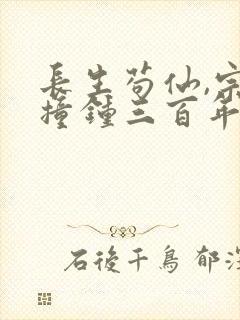 長生苟仙,宗
撞鐘三百年
石後千鳥 郁深